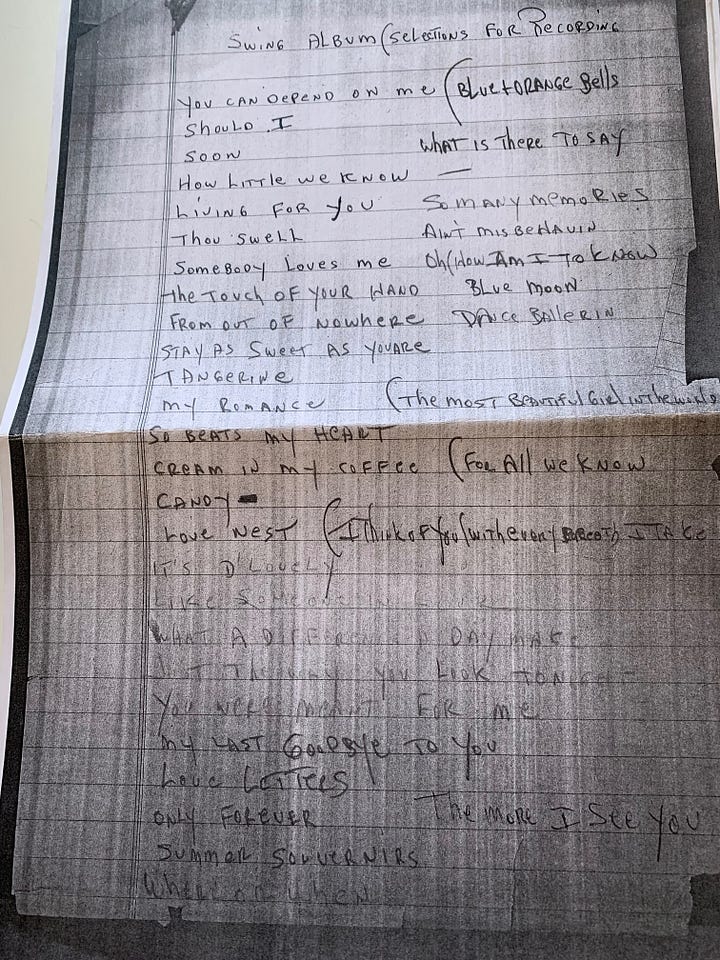 SWING ALBUM (SELECTIONS FOR RECORDING
YOU CAN DEPEND ON ME (BLUE & ORANGE Bells
SHOULD I
SOON WHAT IS THERE TO SAY
HOW LITTLE WE KNOW —
LIVING FOR YOU SO MANY MEMORIES
THOU SWELL AIN'T MISBEHAVIN
SOMEBODY LOVES ME Oh (How AM I TO KNOW
the TOUCH OF YOUR HAND BLUE MOON
FROM OUT OF NOWHERE DANCE BALLERIN
STAY AS SWEET AS YOU ARE
TANGERINE
MY ROMANCE (The MOST BEAUTIFUL Girl IN The World
SO BEATS MY HEART
CREAM IN MY COFFEE (FOR ALL WE KNOW
CANDY
LOVE NEST (I Think OF You (with every BREATH I TAKE
IT'S D'LOVELY
LIKE SOMEONE IN
WHAT A DIFFERENCE A DAY MAKE
JUST THE WAY YOU LOOK TONIGHT
YOU WERE MEANT FOR ME
MY LAST GOODBYE TO YOU
LOVE LETTERS
ONLY FOREVER The MORE I See YOU
SUMMER SOUVERNIRS
Where or When